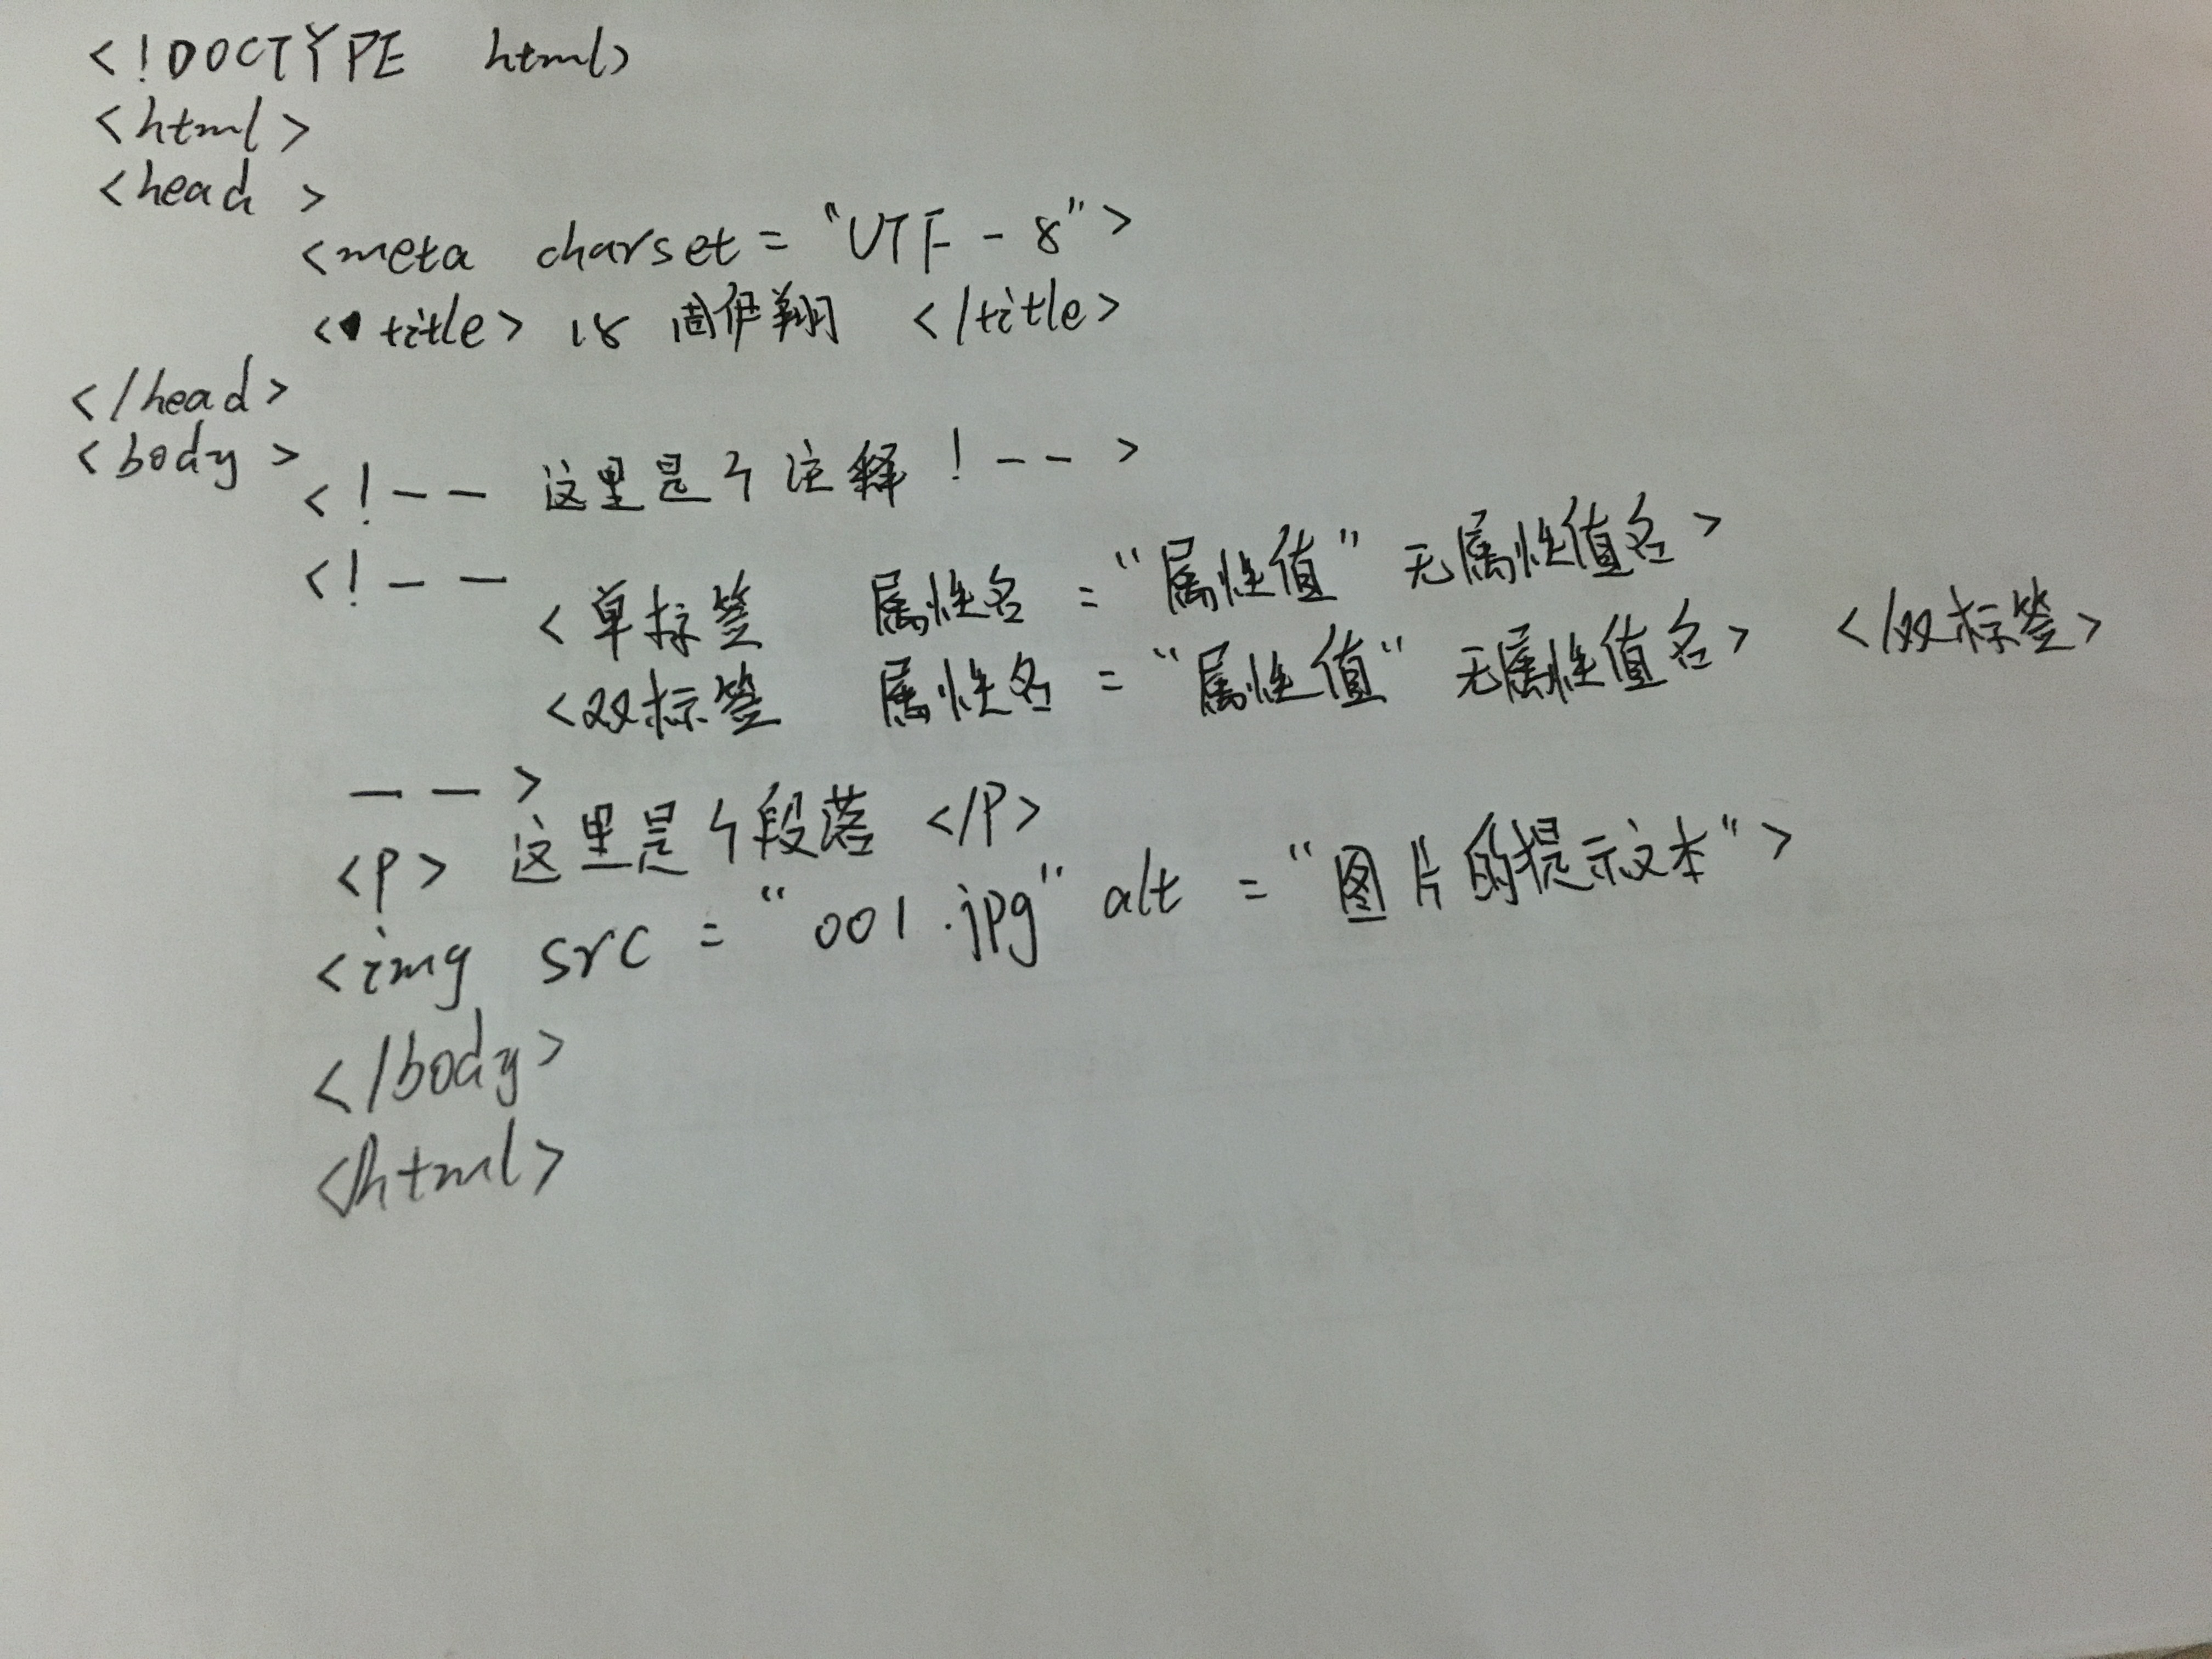 <!DOCTYPE html>
<html>
<head>
<meta charset="UTF-8">
<title> 18 周伊翔 </title>
</head>
<body>
<!-- 这里是个注释!-->
<!--
<单标签 属性名="属性值" 无属性值名>
<双标签 属性名="属性值" 无属性值名> </双标签>
-->
<P> 这里是个段落 </P>
<img src="001.jpg" alt="图片的提示文本">
</body>
</html>